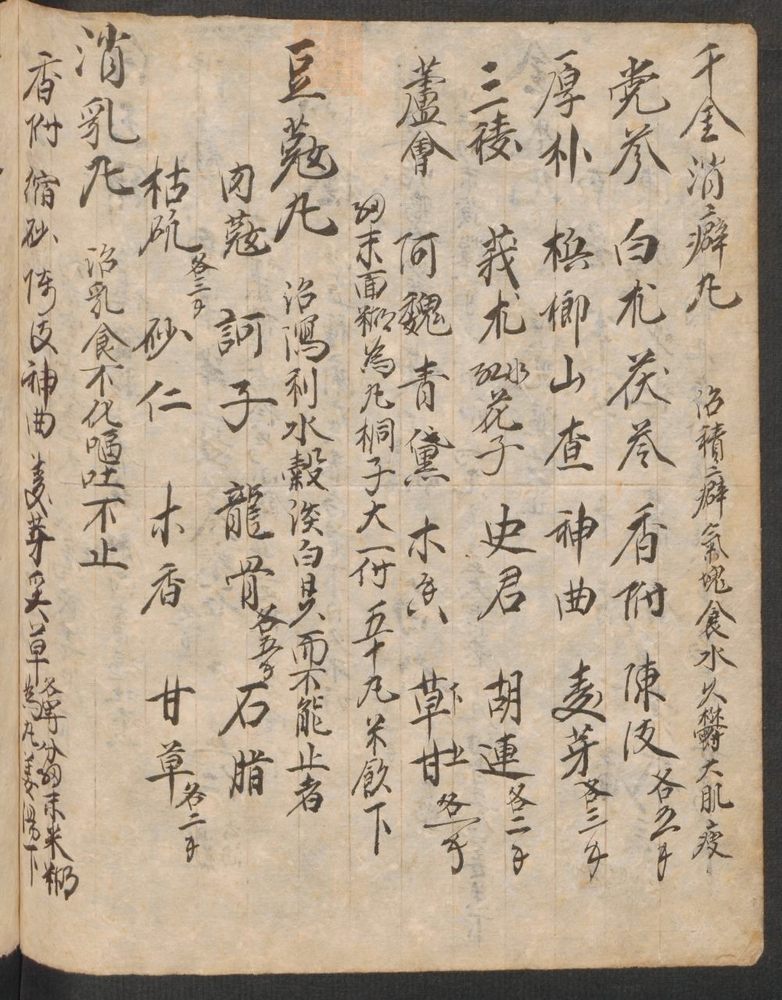 千金消癖丸 治積癖氣塊食水久鬱大肌瘦
党參 白朮 茯苓 香附 陳皮各五手
厚朴 檳榔 山查 神曲 麦芽各三手
三稜 莪朮 紅花子 史君 胡連各二手
蘆會 阿魏 青黛 木香 草甘下上各一手
細末面糊為丸桐子大一付五十丸米飲下
豆蔻丸 治瀉利水穀淡白臭而不能止者
肉蔻 訶子 龍骨各五手 石脂
枯矾各三手 砂仁 木香 甘草各二手
消乳丸 治乳食不化嘔吐不止
香附 縮砂 陳皮 神曲 麦芽 炙草各等分細末米糊為丸姜湯下